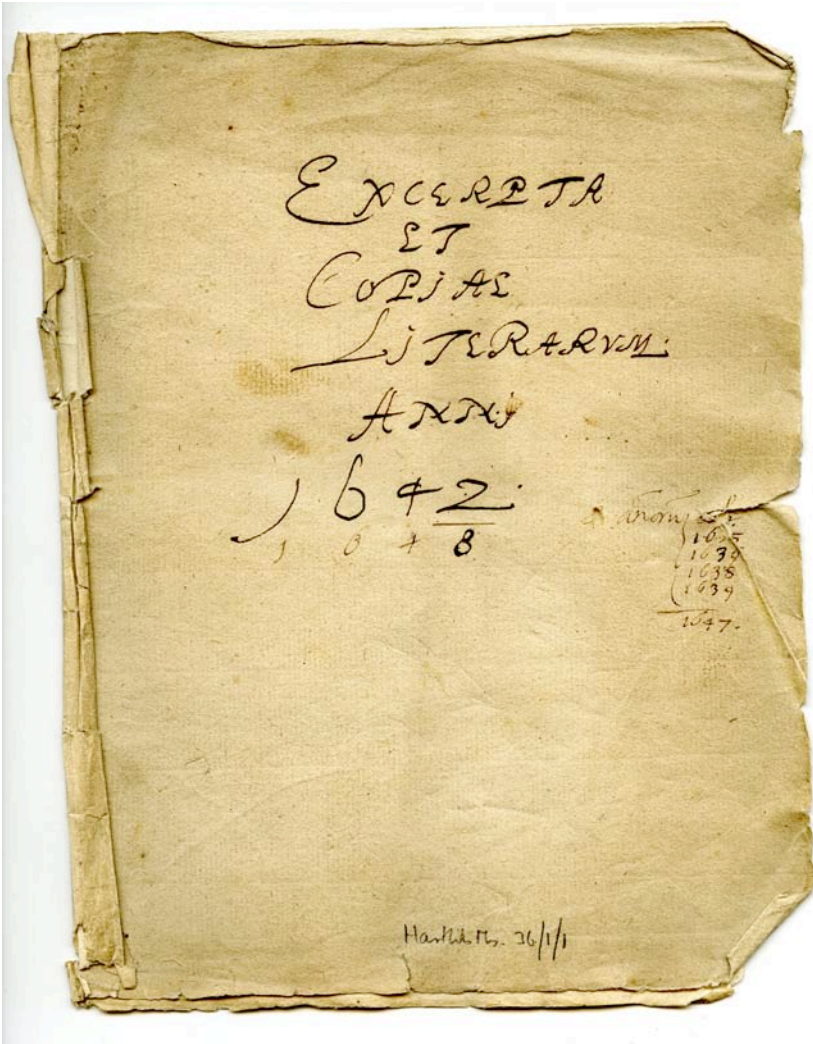 EXCERPTA
ET
COPIAE
LITERARVM.
ANNI
1642.
1 6 4 8
1639
1638
1639
1647.
Hartlib Ms. 36/1/1